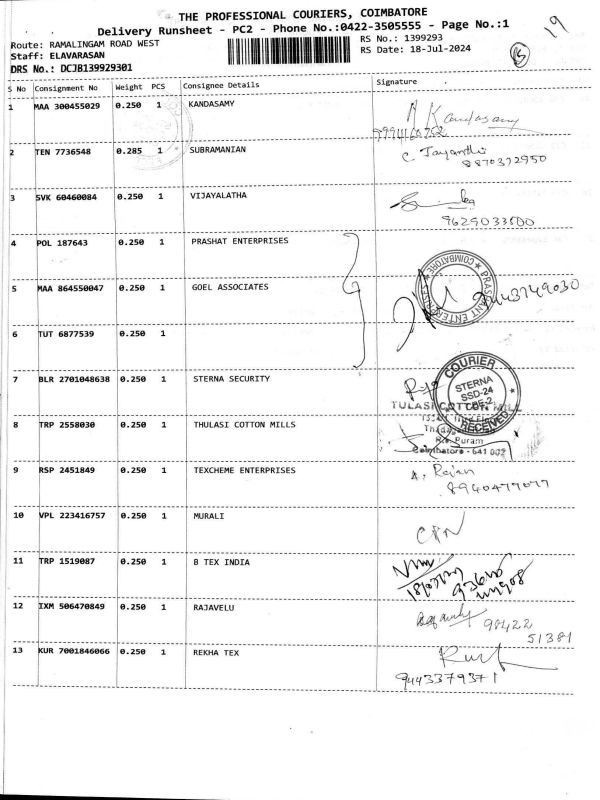 THE PROFESSIONAL COURIERS, COIMBATORE
Delivery Runsheet - PC2 - Phone No.:0422-3505555 - Page No.:1
19
Route: RAMALINGAM ROAD WEST
RS No.: 1399293
Staff: ELAVARASAN
RS Date: 18-Jul-2024
DRS No.: DCJB139929301
S No Consignment No Weight PCS Consignee Details Signature
1 MAA 300455029 0.250 1 KANDASAMY
Kandasamy
2 TEN 7736548 0.285 1 SUBRAMANIAN
C. Jayanthi
8870372950
3 SVK 60460084 0.250 1 VIJAYALATHA
9629033500
4 POL 187643 0.250 1 PRASHAT ENTERPRISES
PRASHANT ENTERPRISES COIMBATORE
5 MAA 864550047 0.250 1 GOEL ASSOCIATES
9443749030
6 TUT 6877539 0.250 1
7 BLR 2701048638 0.250 1 STERNA SECURITY
COURIER
STERNA
SSD-24
CBE-2
RECEIVED
TULASI COTTON MILL
8 TRP 2558030 0.250 1 THULASI COTTON MILLS
R.S. Puram
Coimbatore - 641 002
9 RSP 2451849 0.250 1 TEXCHEME ENTERPRISES
A. Rajan
8940477077
10 VPL 223416757 0.250 1 MURALI
11 TRP 1519087 0.250 1 B TEX INDIA
12 IXM 506470849 0.250 1 RAJAVELU
98422
51381
13 KUR 7001846066 0.250 1 REKHA TEX
9443379371